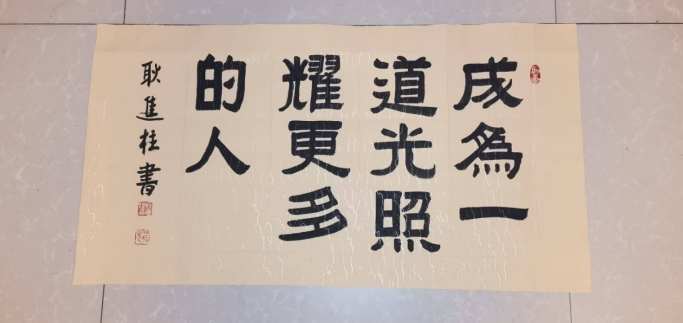 成為一
道光照
耀更多
的人
耿進柱書